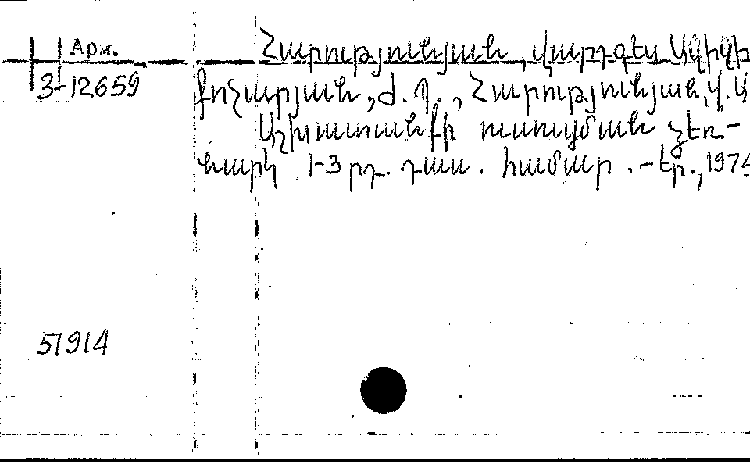 Арм.
3-12659
Հարությունյան, Վարդգես Ազիզի
Քոչարյան, Ժ. Պ., Հարությունյան, Վ. Ա
Աշխատանքի ուսուցման ձեռ-
նարկ 1-3 րդ. դաս. համար. - Եր., 1974
51914